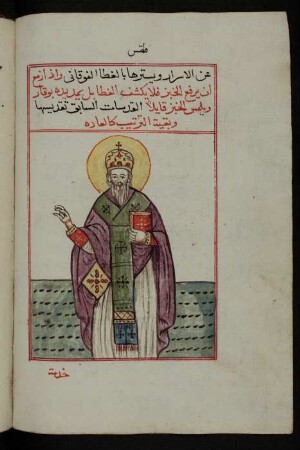 قدس
عن الاسرار ويسترها بالغطا الفوقاني واذ ازمع
ان يرفع الخبز فلا يكشف الغطا بل يمد يده بوقار
ويلمس الخبز قايلاً القدسات السابق تقديسها
وبقية الترتيب كالعاده
خدمة